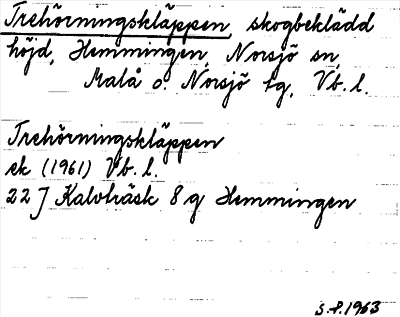 Trehörningskläppen, skogbeklädd
höjd, Hemmingen, Norsjö sn,
Malå o. Norsjö tg, Vb. l.
Trehörningskläppen
ek (1961) Vb. l.
22 J Kalvträsk 8 g Hemmingen
3.8.1963